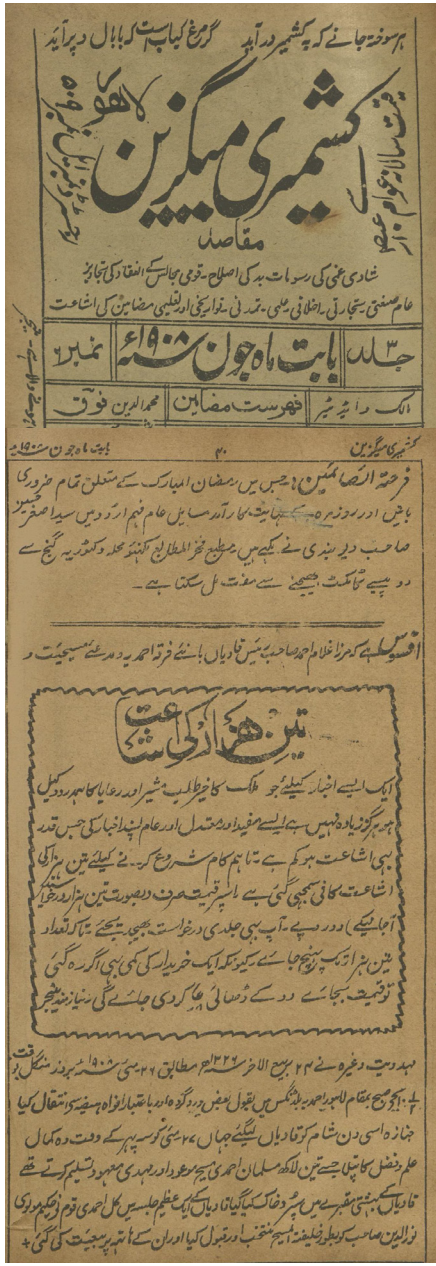 ہر سوختہ جانے کہ بہ کشمیر در آید گر مرغ کباب است کہ با بال و پر آید
کشمیری میگزین
لاہور
قیمت سالانہ عوام سے
مقاصد
شادی غمی کی رسومات بد کی اصلاح ۔ قومی مجالس کے انعقاد کی تجاویز
عام صنعتی ۔ تجارتی ۔ اخلاقی ۔ علمی ۔ تمدنی ۔ تواریخی اور تعلیمی مضامین کی اشاعت
جلد ۳ بابت ماہ جون سنہ ۱۹۰۸ء نمبر ۶
مالک و ایڈیٹر فہرست مضامین محمد الدین فوق
کشمیری میگزین ۴۰ بابت ماہ جون سنہ ۱۹۰۸ء
فرحۃ الصائمین: جس میں رمضان المبارک کے متعلق تمام ضروری
باتیں اور روزمرہ کے نہایت کارآمد مسایل عام فہم اردو میں سید اصغر حسین
صاحب دیوبندی نے لکھے ہیں مطبع فخر المطابع لکھنؤ محلہ وکٹوریہ گنج سے
دو پیسے کا ٹکٹ بھیجنے سے مفت مل سکتا ہے ۔
افسوس ہے کہ مرزا غلام احمد صاحب رئیس قادیاں بانئے فرقہ احمدیہ و مدعئے مسیحیت و
تین ہزار کی اشاعت
ایک ایسے اخبار کیلئے جو ملک کا خیر طلب مشیر اور رعایا کا ہمدرد وکیل
ہو ہرگز زیادہ نہیں ہے ایسے مفید اور معتدل اور عام پسند اخبار کی جس قدر
بھی اشاعت ہو کم ہے ۔ تاہم کام شروع کرنے کیلئے تین ہزار کی
اشاعت کافی سمجھی گئی ہے اسپر قیمت صرف (بصورت تین ہزار درخواستیں
آجانیکے) دو روپے ۔ آپ بھی جلدی درخواست بھیجدیجئے ۔ تاکہ تعداد
تین ہزار تک پہنچ جائے ۔ کیونکہ ایک خریدار کی کمی بھی اگر رہ گئی
تو قیمت بجائے دو کے ڈھائی کر دی جائے گی (نیازمند منیجر
مہدویت وغیرہ نے ۲۴ ربیع الآخر سنہ ۱۳۲۶ھ مطابق ۲۶ مئی سنہ ۱۹۰۸ء بروز منگل بوقت
۱۰½ بجے صبح بمقام لاہور احمدیہ بلڈنگس میں بقول بعض درد گردہ اور باعتبار افواہ ہیضہ سے انتقال کیا
جنازہ اسی دن شام کو قادیاں لیگئے جہاں ۲۷ مئی کو سہ پہر کے وقت وہ کمال
علم و فضل کا پتلا جسے تین لاکھ مسلمان احمدی مسیح موعود اور مہدی معہود تسلیم کرتے تھے
قادیاں کے بہشتی مقبرے میں سپرد خاک کیا گیا قادیاں کے ایک عظیم جلسہ میں کل احمدی قوم نے حکیم مولوی
نور الدین صاحب کو بطور خلیفۃ المسیح منتخب اور قبول کیا اور ان کے ہاتھ پر بیعت کی گئی +